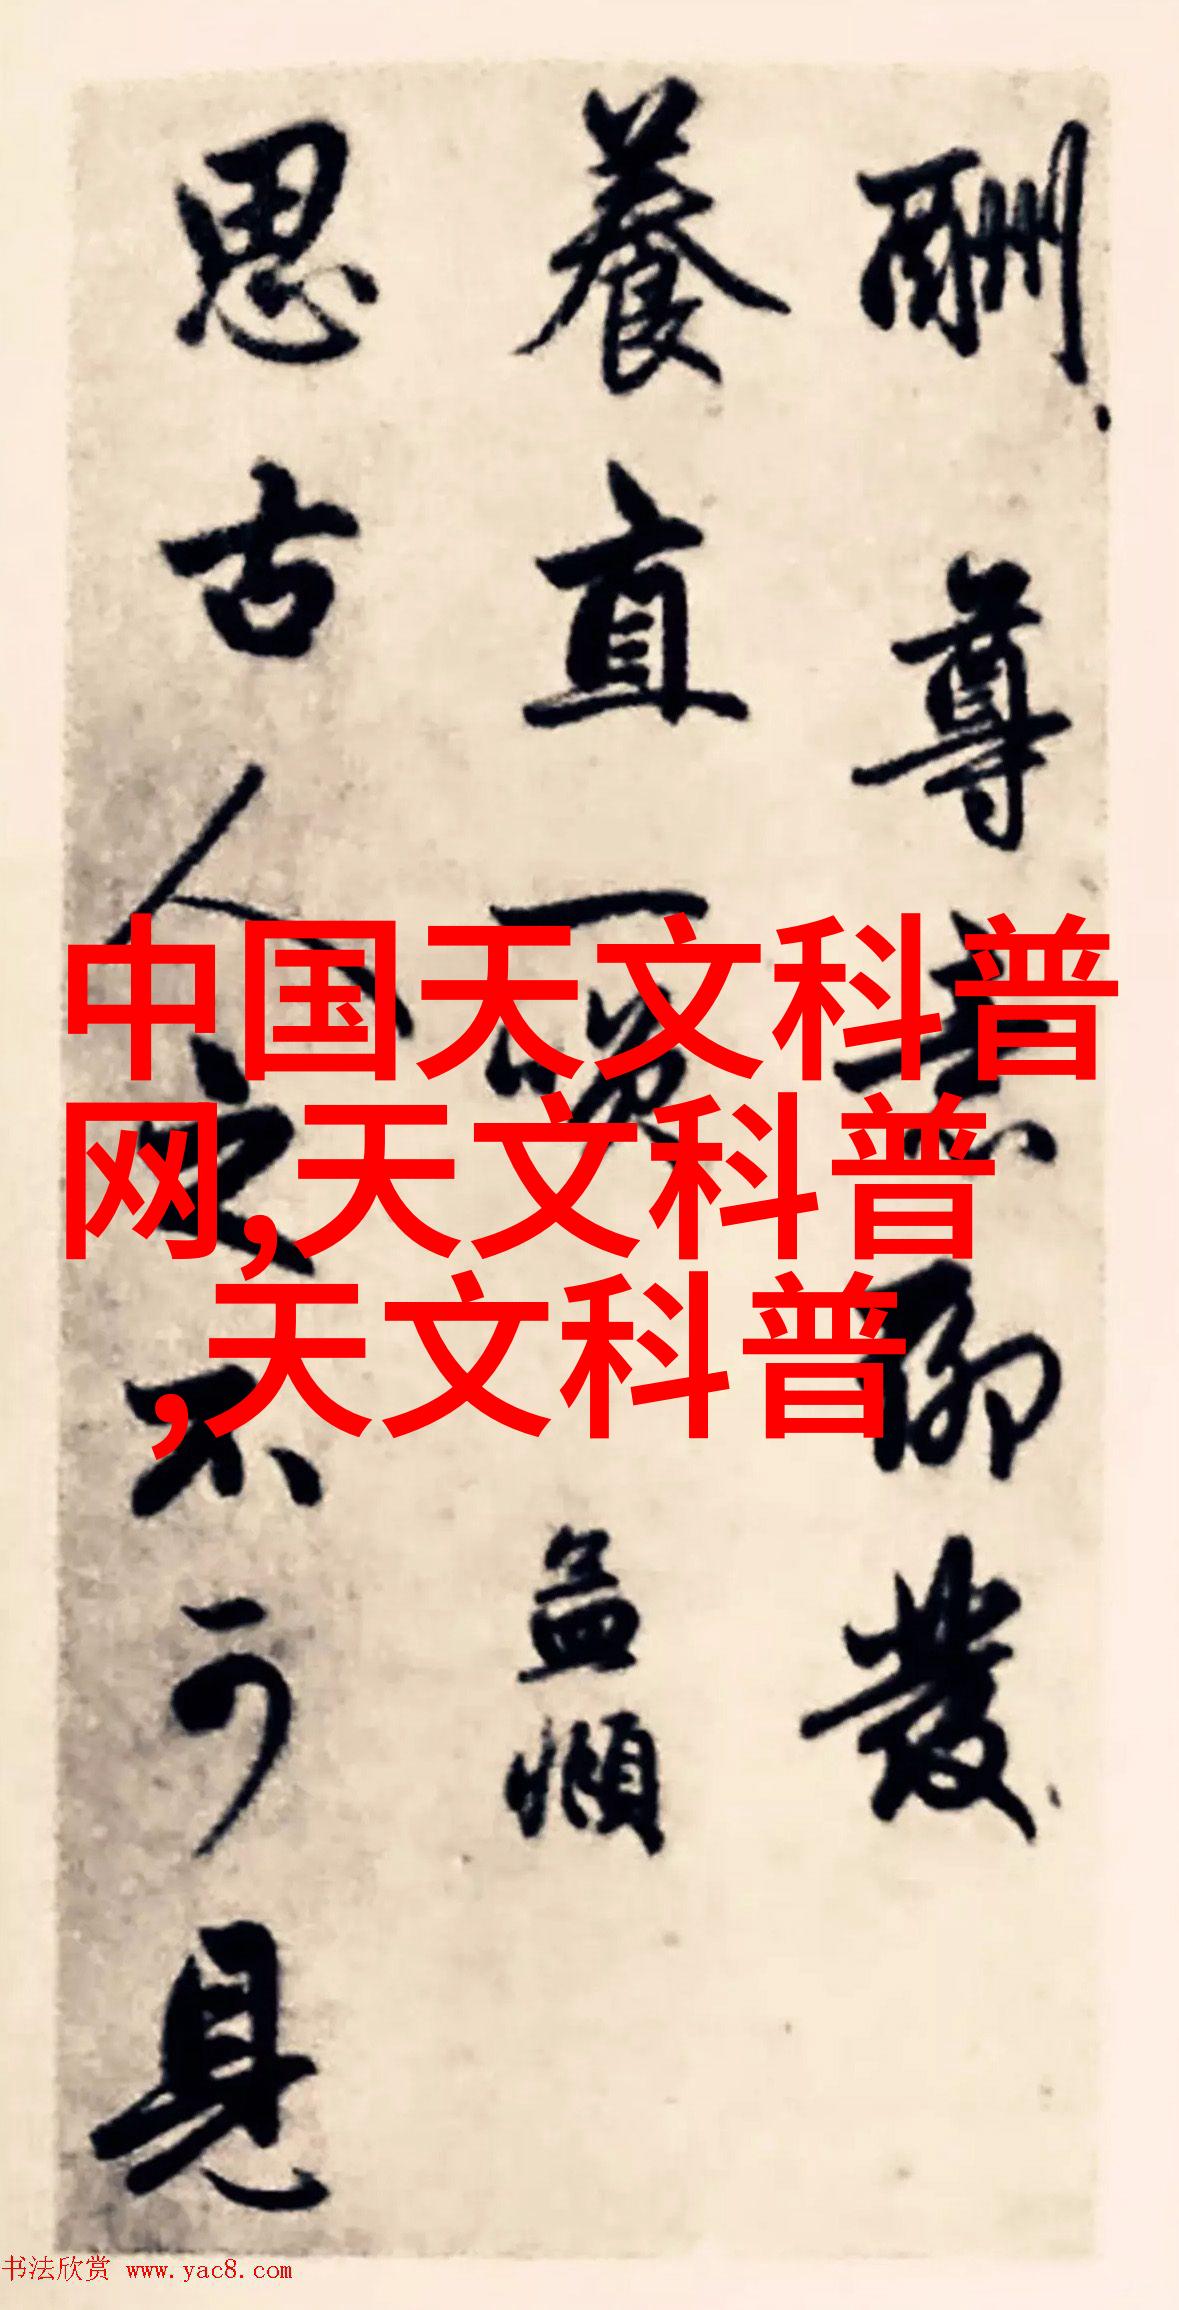 酬尊素聊發
養直一
孟頫
思古人之不可見
中国天文科普
网,天文科普
,天文科普
书法欣赏 www.yac8.com